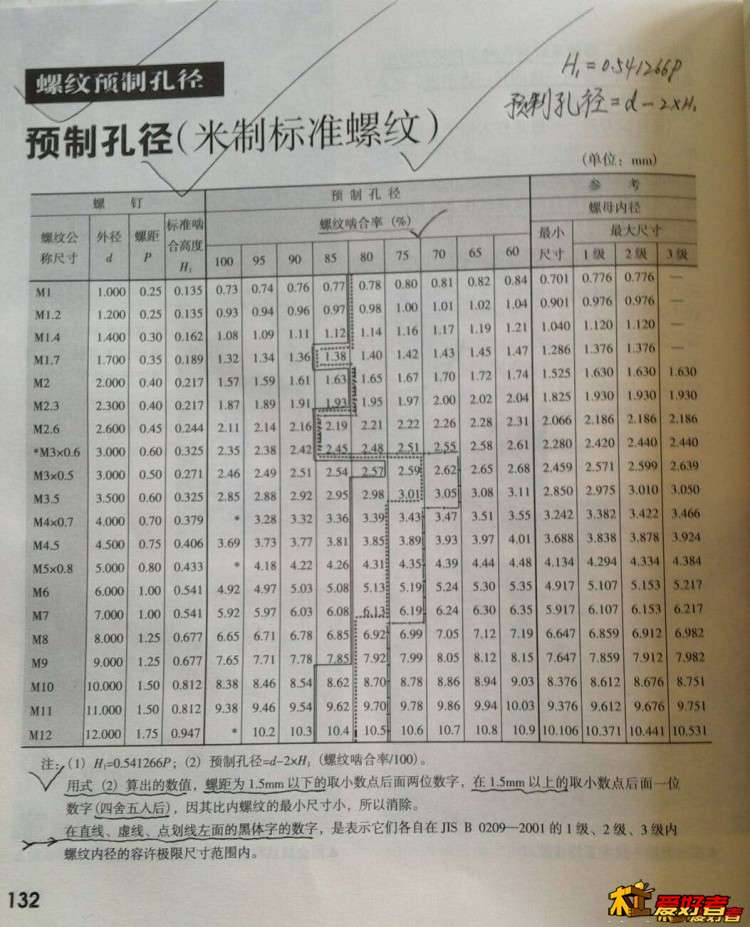 螺纹预制孔径
H₁=0.541266P
预制孔径=d-2×H₁
预制孔径(米制标准螺纹)
(单位:mm)
螺 钉 预 制 孔 径 参 考
螺纹公称尺寸 外径 d 螺距 P 标准啮合高度 H₁ 螺纹啮合率(%) 螺母内径
最小尺寸 最大尺寸
100 95 90 85 80 75 70 65 60 1级 2级 3级
M1 1.000 0.25 0.135 0.73 0.74 0.76 0.77 0.78 0.80 0.81 0.82 0.84 0.701 0.776 0.776 —
M1.2 1.200 0.25 0.135 0.93 0.94 0.96 0.97 0.98 1.00 1.01 1.02 1.04 0.901 0.976 0.976 —
M1.4 1.400 0.30 0.162 1.08 1.09 1.11 1.12 1.14 1.16 1.17 1.19 1.21 1.040 1.120 1.120 —
M1.7 1.700 0.35 0.189 1.32 1.34 1.36 1.38 1.40 1.42 1.43 1.45 1.47 1.286 1.376 1.376 —
M2 2.000 0.40 0.217 1.57 1.59 1.61 1.63 1.65 1.67 1.70 1.72 1.74 1.525 1.630 1.630 1.630
M2.3 2.300 0.40 0.217 1.87 1.89 1.91 1.93 1.95 1.97 2.00 2.02 2.04 1.825 1.930 1.930 1.930
M2.6 2.600 0.45 0.244 2.11 2.14 2.16 2.19 2.21 2.22 2.26 2.28 2.31 2.066 2.186 2.186 2.186
*M3×0.6 3.000 0.60 0.325 2.35 2.38 2.42 2.45 2.48 2.51 2.55 2.58 2.61 2.280 2.420 2.440 2.440
M3×0.5 3.000 0.50 0.271 2.46 2.49 2.51 2.54 2.57 2.59 2.62 2.65 2.68 2.459 2.571 2.599 2.639
M3.5 3.500 0.60 0.325 2.85 2.88 2.92 2.95 2.98 3.01 3.05 3.08 3.11 2.850 2.975 3.010 3.050
M4×0.7 4.000 0.70 0.379 * 3.28 3.32 3.36 3.39 3.43 3.47 3.51 3.55 3.242 3.382 3.422 3.466
M4.5 4.500 0.75 0.406 3.69 3.73 3.77 3.81 3.85 3.89 3.93 3.97 4.01 3.688 3.838 3.878 3.924
M5×0.8 5.000 0.80 0.433 * 4.18 4.22 4.26 4.31 4.35 4.39 4.44 4.48 4.134 4.294 4.334 4.384
M6 6.000 1.00 0.541 4.92 4.97 5.03 5.08 5.13 5.19 5.24 5.30 5.35 4.917 5.107 5.153 5.217
M7 7.000 1.00 0.541 5.92 5.97 6.03 6.08 6.13 6.19 6.24 6.30 6.35 5.917 6.107 6.153 6.217
M8 8.000 1.25 0.677 6.65 6.71 6.78 6.85 6.92 6.99 7.05 7.12 7.19 6.647 6.859 6.912 6.982
M9 9.000 1.25 0.677 7.65 7.71 7.78 7.85 7.92 7.99 8.05 8.12 8.15 7.647 7.859 7.912 7.982
M10 10.000 1.50 0.812 8.38 8.46 8.54 8.62 8.70 8.78 8.86 8.94 9.03 8.376 8.612 8.676 8.751
M11 11.000 1.50 0.812 9.38 9.46 9.54 9.62 9.70 9.78 9.86 9.94 10.03 9.376 9.612 9.676 9.751
M12 12.000 1.75 0.947 * 10.2 10.3 10.4 10.5 10.6 10.7 10.8 10.9 10.106 10.371 10.441 10.531
注:(1) H₁=0.541266P;(2) 预制孔径=d-2×H₁(螺纹啮合率/100)。
用式(2)算出的数值,螺距为1.5mm以下的取小数点后面两位数字,在1.5mm以上的取小数点后面一位
数字(四舍五入后),因其比内螺纹的最小尺寸小,所以消除。
在直线、虚线、点划线左面的黑体字的数字,是表示它们各自在JIS B 0209—2001的1级、2级、3级内
螺纹内径的容许极限尺寸范围内。
132
木工爱好者